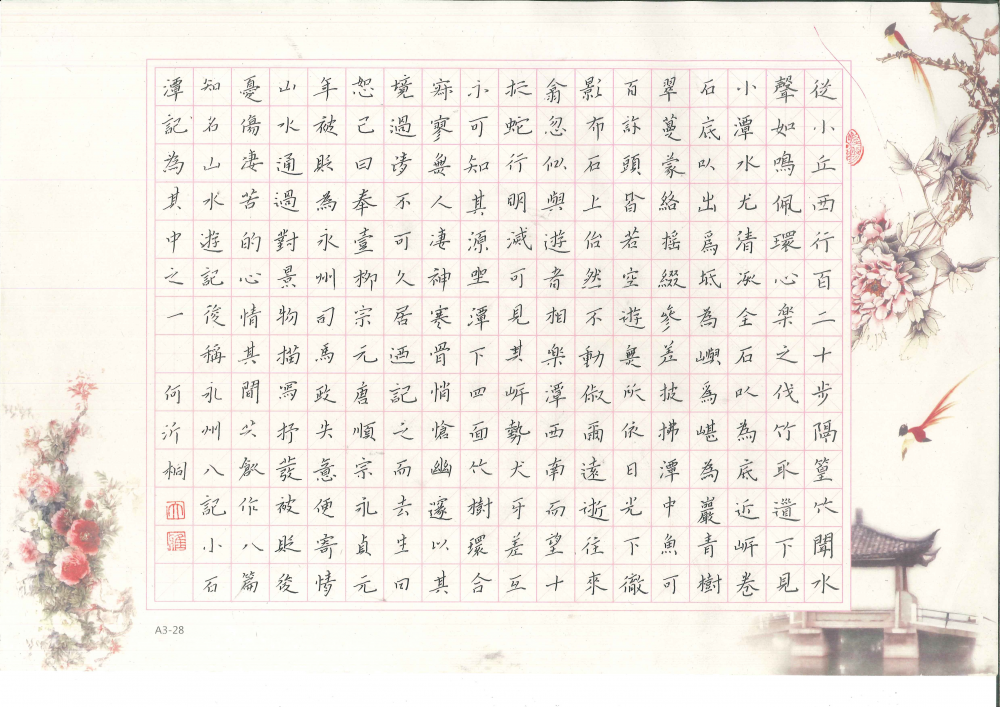 從小丘西行百二十步隔篁竹聞水
聲如鳴佩環心樂之伐竹取道下見
小潭水尤清冽全石以為底近岸卷
石底以出為坻為嶼為嵁為巖青樹
翠蔓蒙絡搖綴參差披拂潭中魚可
百許頭皆若空遊無所依日光下徹
影布石上佁然不動俶爾遠逝往來
翕忽似與遊者相樂潭西南而望十
折蛇行明滅可見其岸勢犬牙差互
不可知其源坐潭下四面竹樹環合
寂寥無人淒神寒骨悄愴幽邃以其
境過清不可久居迺記之而去生曰
恕己曰奉壹柳宗元唐順宗永貞元
年被貶為永州司馬政失意便寄情
山水通過對景物描寫抒發被貶後
憂傷淒苦的心情其間共飲作八篇
知名山水遊記後稱永州八記小石
潭記為其中之一 何沂桐
A3-28